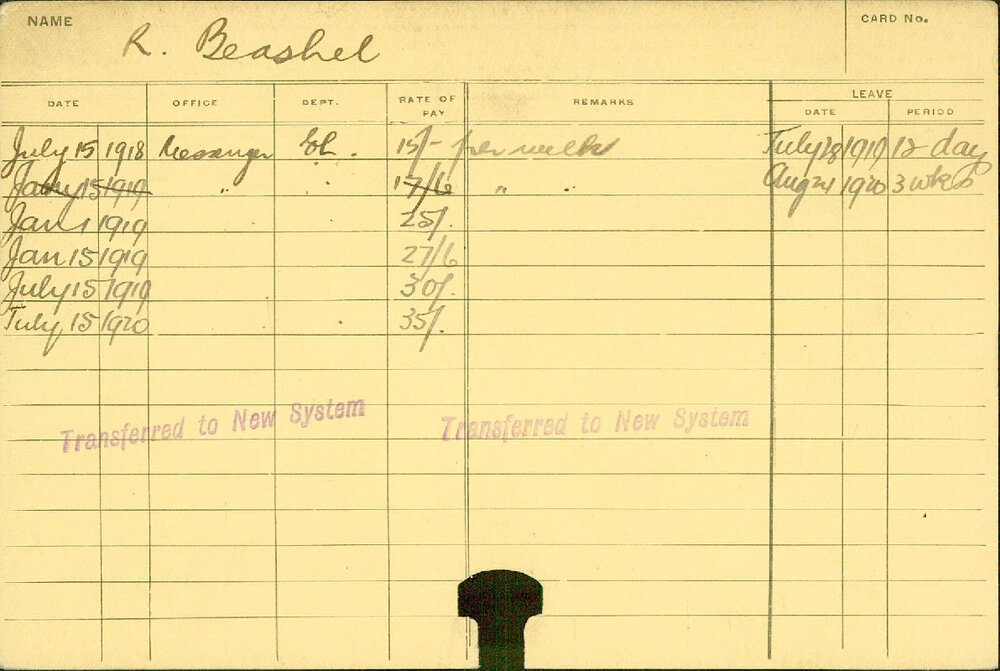 NAME R. Beashel CARD No.
DATE OFFICE DEPT. RATE OF PAY REMARKS LEAVE
DATE PERIOD
July 15 1918 Messenger 15/- per week July 28 1919 12 day
Jany 15 1919 " 17/6 " Aug 24 1920 3 wks
Jan 1 1919 25/.
Jan 15 1919 27/6
July 15 1919 30/.
July 15 1920 35/.
Transferred to New System Transferred to New System